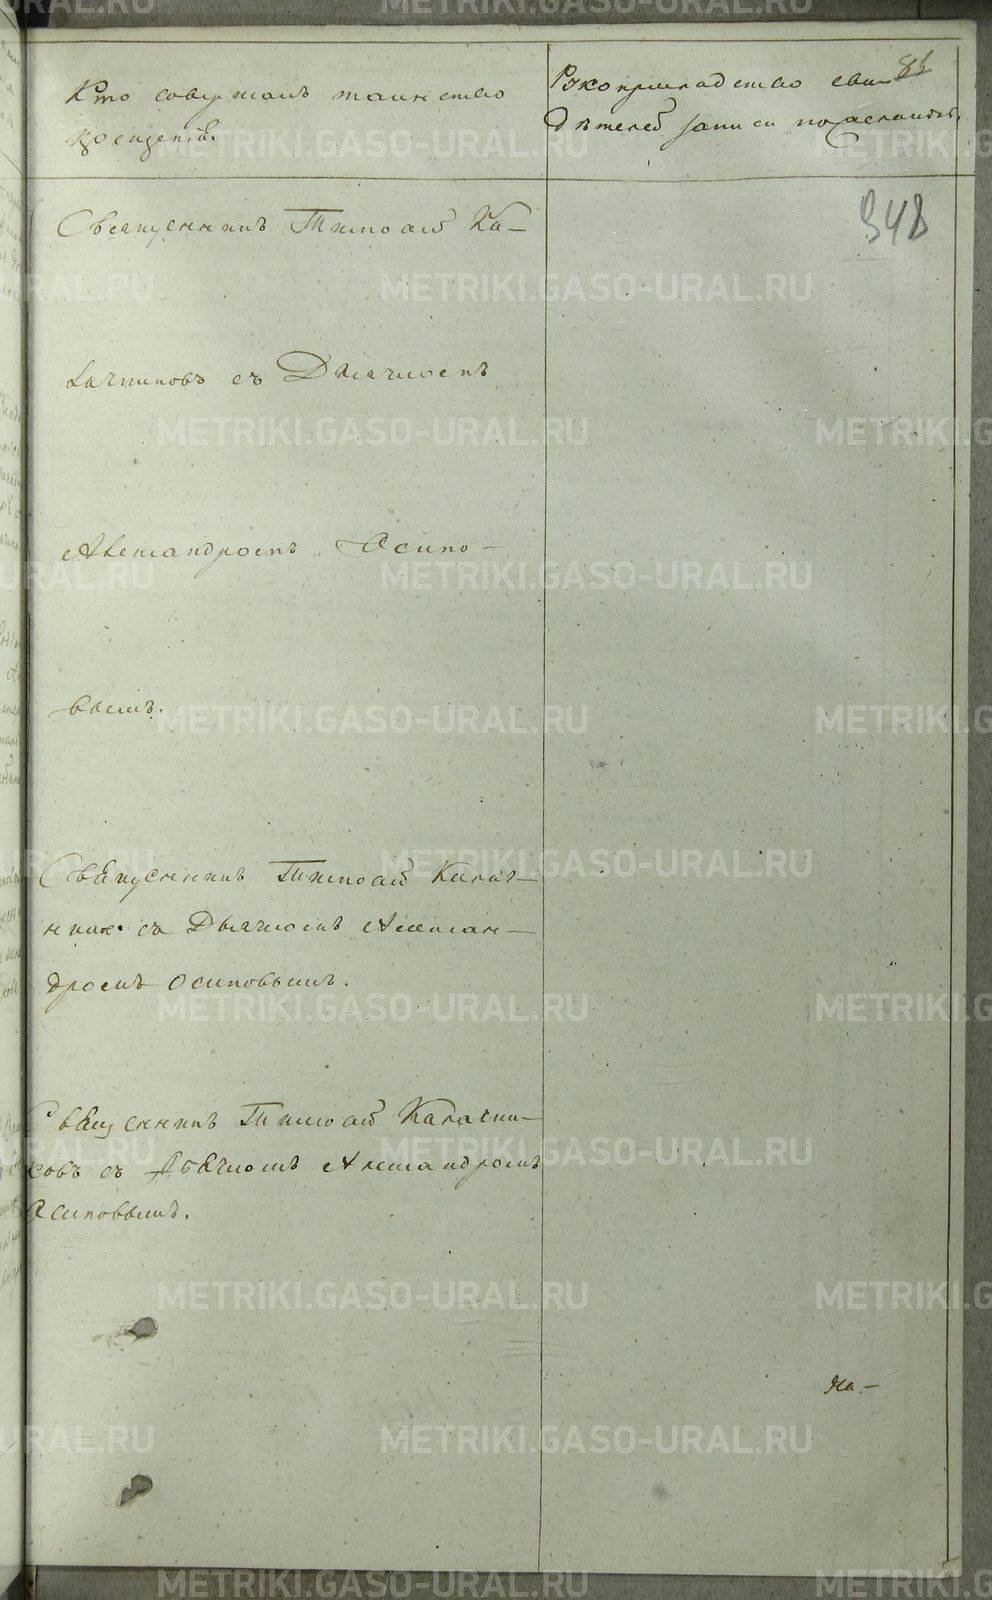 Кто совершалъ таинство
крещенія.
Рукоприкладство сви-
дѣтелей записи по желанію.
86
348
Священникъ Тимоѳей Ка-
лачниковъ съ Дьячкомъ
Александромъ Осипо-
вымъ.
Священникъ Тимоѳей Калач-
ник. съ Дьячкомъ Алексан-
дромъ Осиповымъ.
Священникъ Тимоѳей Калачни-
ковъ съ Дьячкомъ Александромъ
Осиповымъ.
На-
METRIKI.GASO-URAL.RU